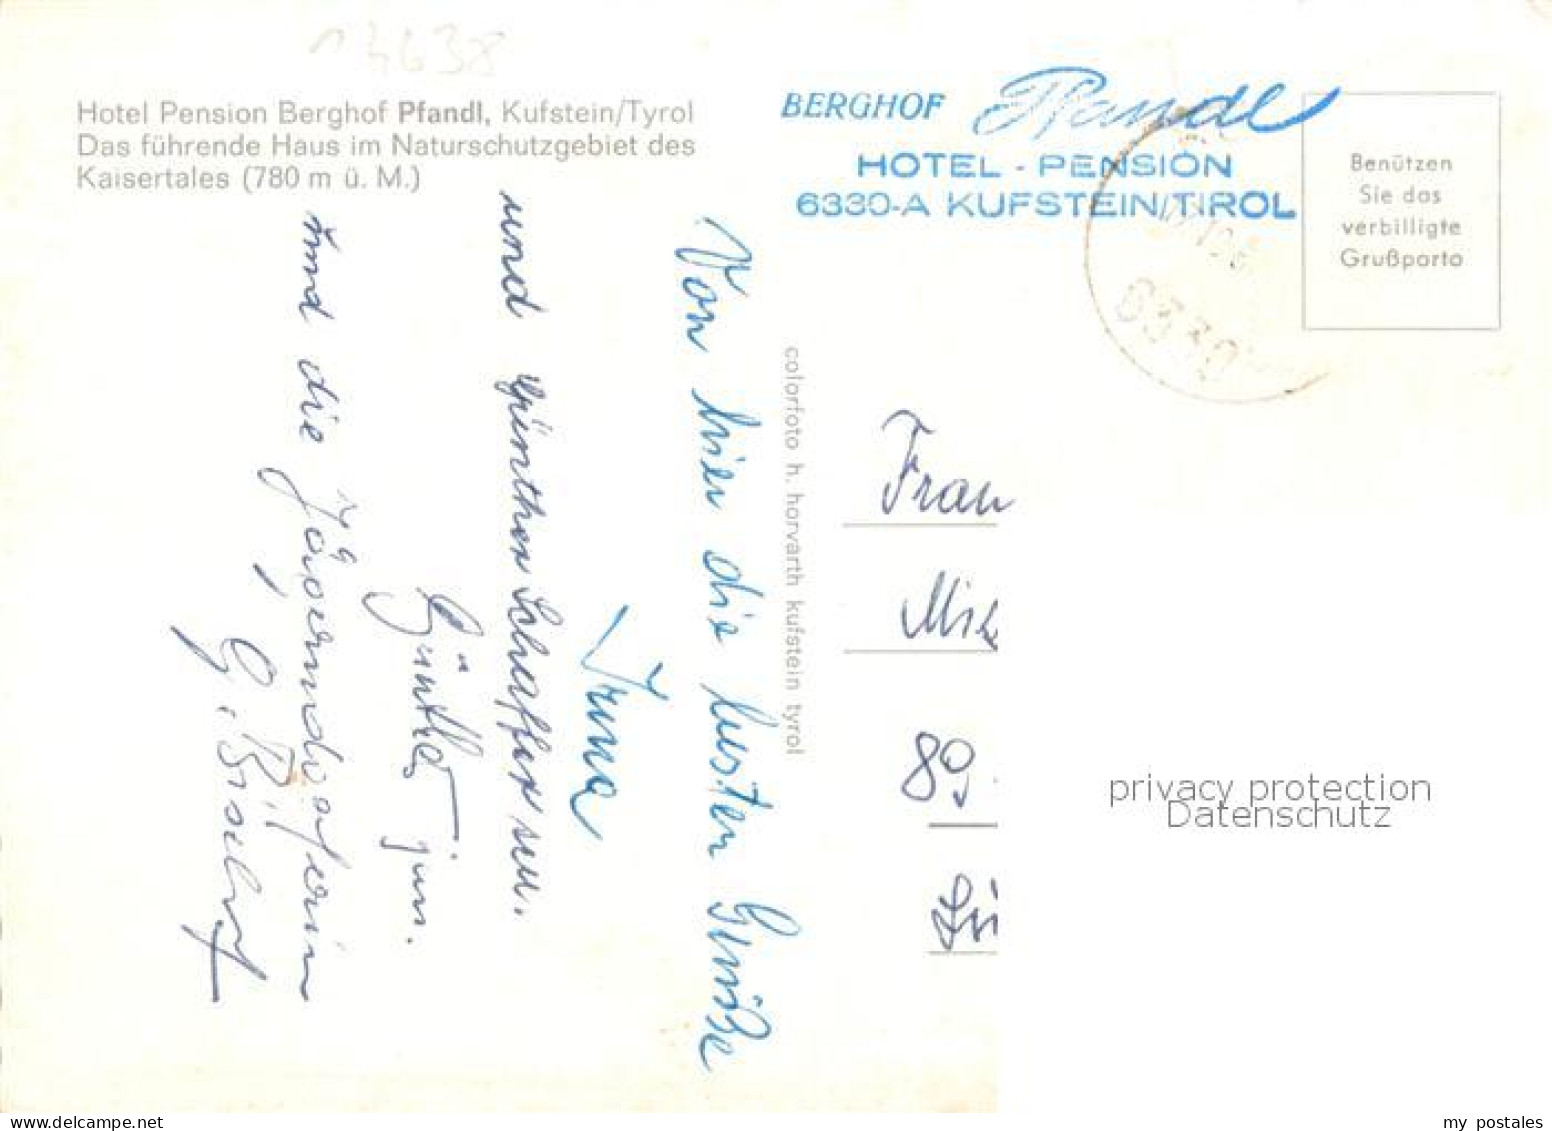 13638
Hotel Pension Berghof Pfandl, Kufstein/Tyrol
Das führende Haus im Naturschutzgebiet des
Kaisertales (780 m ü. M.)
BERGHOF Pfandl
HOTEL - PENSION
6330-A KUFSTEIN/TIROL
Benützen
Sie das
verbilligte
Grußporto
6330
Von hier die besten Grüße
Irma
und Günther Schaffer sen.
Günther jun.
und die
G. 
colorfoto h. horvarth kufstein tyrol
Frau
80
privacy protection
Datenschutz
my postales